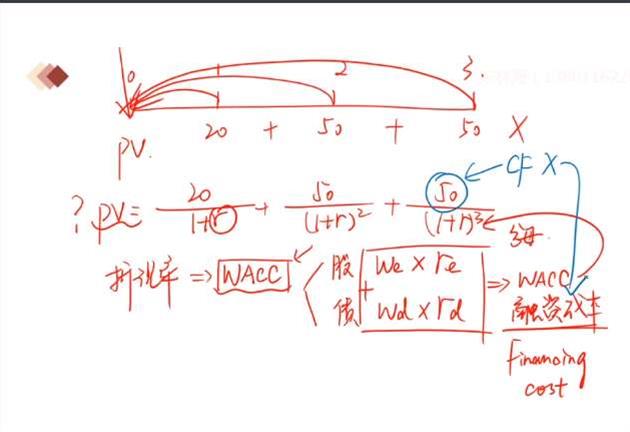 0 1 2 3.
20 + 50 + 50 X
PV.
CF X
? PV = 20/(1+r) + 50/(1+r)² + 50/(1+r)³
折现率 ⇒ WACC 股 We × re ⇒ WACC
+
债 Wd × rd 融资成本率
Financing
cost